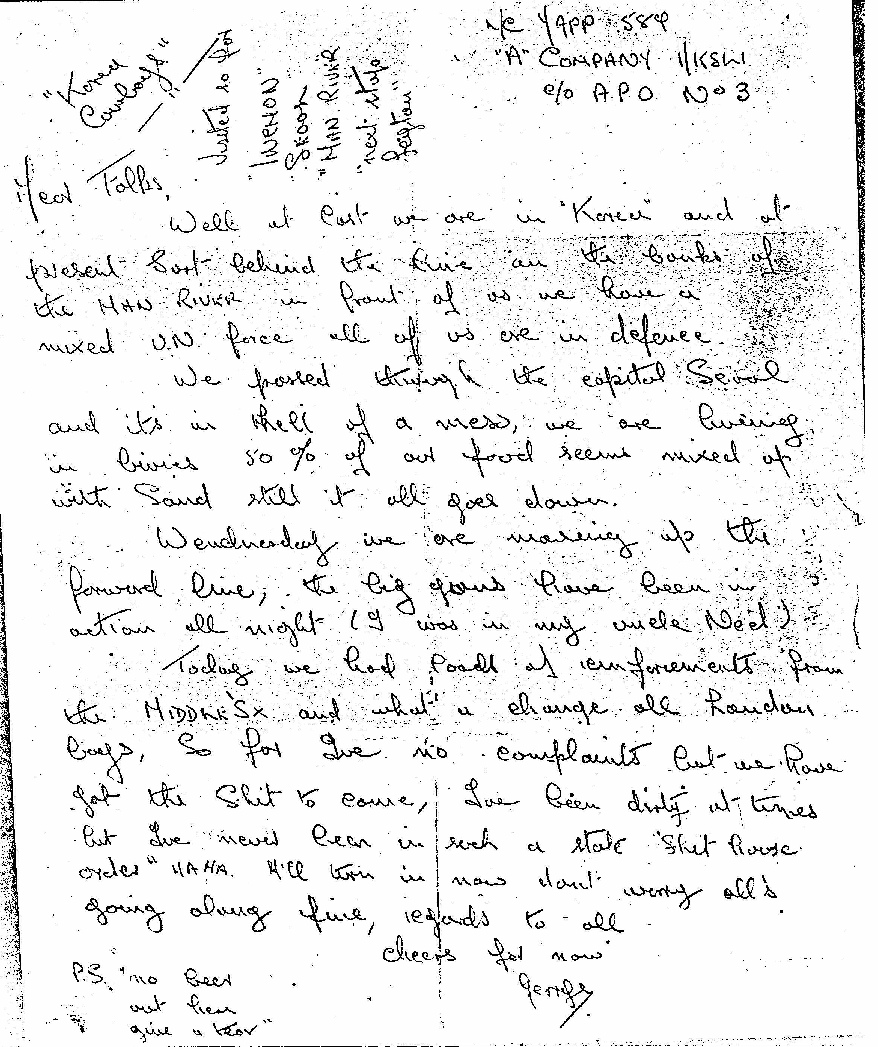 "A" COMPANY 1/KSLI
c/o A.P.O. No 3
"Korea
Cowboys"
Visited so far
SKOOL
"HAN RIVER
"next stop
Dear Folks,
Well at last we are in "Korea" and at
present Sort behind the line on the banks of
the HAN RIVER in front of us we have a
mixed U.N. force all of us are in defence.
We passed through the capital Seoul
and it's in thell of a mess, we are liveing
in bivies 50 % of our food seems mixed up
with Sand still it all goes down.
Wendnesday we are moveing up the
forward line, the big guns have been in
action all night (I was in my uncle Ned!)
Today we had loads of reinforcements from
the MIDDLE'SX and what a change all London
boys, So far I've no complaints but we have
got the Shit to come, I've been dirty at times
but I've never been in such a state "Shit house
order" HA HA. I'll turn in now dont worry all's
going along fine, regards to all
cheers for now
George
P.S. "no beer
out here
give a tear"